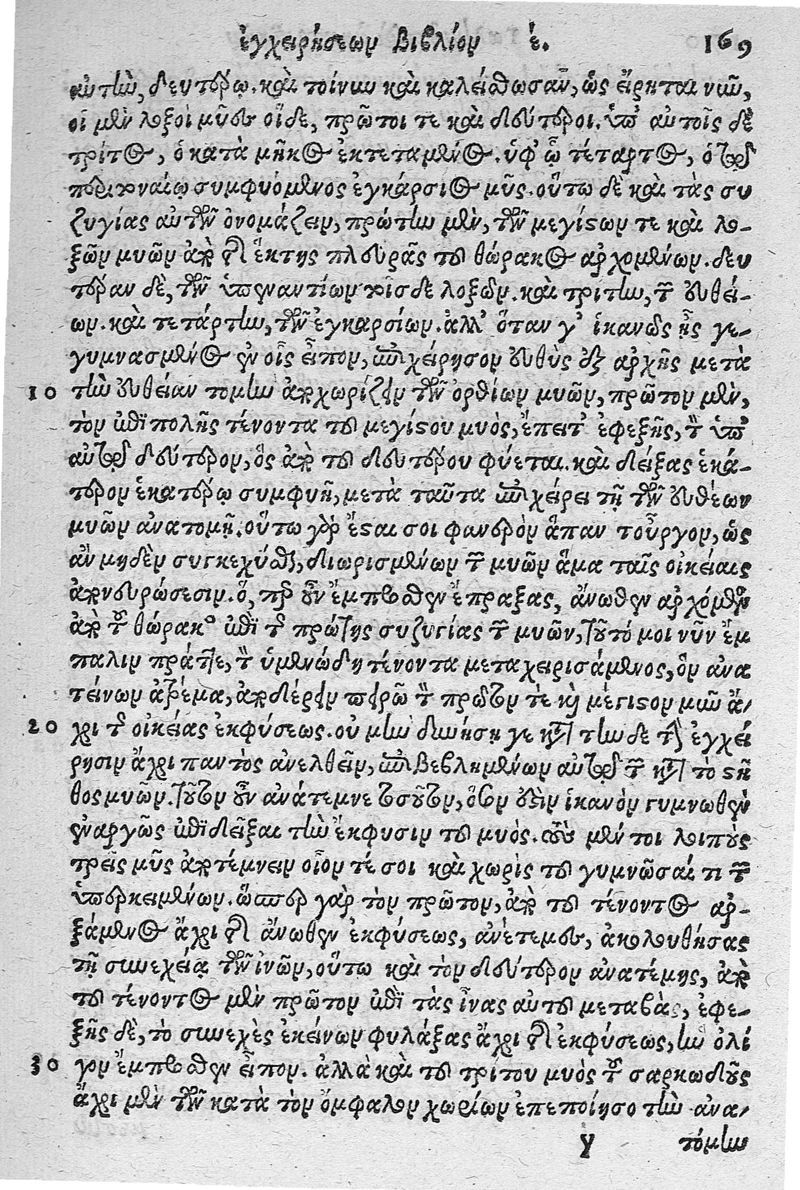 ἐγχειρήσεων Βιβλίον έ. 169
αὐτὴν, δευτέρῳ. καὶ τοίνυν καὶ καλείσθωσαν, ὡς εἴρηται νῦν,
οἱ μὲν λοξοὶ μῦες οἵδε, πρῶτοι τε καὶ δεύτεροι. ὑπ' αὐτοῖς δὲ
τρίτος, ὁ κατὰ μῆκος ἐκτεταμένος. ὑφ' ᾧ τέταρτος, ὁ τῷ
περιτοναίῳ συμφυόμενος ἐγκάρσιος μῦς. οὕτω δὲ καὶ τὰς συ
ζυγίας αὐτῶν ὀνομάζειν, πρώτην μὲν, τῶν μεγίστων τε καὶ λο-
ξῶν μυῶν ἀπὸ τῆς ἕκτης πλευρᾶς τοῦ θώρακος ἀρχομένων. δευ
τέραν δὲ, τῶν ὑπεναντίων τοῖσδε λοξῶν. καὶ τρίτην, τῶν εὐθέι-
ων. καὶ τετάρτην, τῶν ἐγκαρσίων. ἀλλ' ὅταν γ' ἱκανῶς ᾖς γε-
γυμνασμένος ἐν οἷς εἶπον, ἐπιχείρησον εὐθὺς ἐξ ἀρχῆς μετὰ
10 τὴν εὐθεῖαν τομὴν ἀποχωρίζειν τῶν ὀρθίων μυῶν, πρῶτον μὲν,
τὸν ἐπιπολῆς τένοντα τοῦ μεγίστου μυὸς, ἔπειτ' ἐφεξῆς, τὸν ὑπ'
αὐτῷ δεύτερον, ὃς ἀπὸ τοῦ δευτέρου φύεται. καὶ δείξας ἑκά-
τερον ἑκατέρῳ συμφυῆ, μετὰ ταῦτα ἐπιχείρει τῇ τῶν εὐθέων
μυῶν ἀνατομῇ. οὕτω γὰρ ἔσται σοι φανερὸν ἅπαν τοὖργον, ὡς
ἂν μηδὲν συγκεχύσθαι, διωρισμένων τῶν μυῶν ἅμα ταῖς οἰκείαις
ἀπονευρώσεσιν. ὅ, περ οὖν ἔμπροσθεν ἔπραξας, ἄνωθεν ἀρχόμενος
ἀπὸ τοῦ θώρακος ἐπὶ τῆς πρώτης συζυγίας τῶν μυῶν, τοῦτό μοι νῦν ἔμ
παλιν πράττε, τὸν ὑμενώδη τένοντα μεταχειρισάμενος, ὃν ἀνα
τείνων ἀτρέμα, ἀποδέρειν πειρῶ τὸν πρῶτόν τε καὶ μέγιστον μῦν ἄ-
20 χρι τῆς οἰκείας ἐκφύσεως. οὐ μὴν δυνήσῃ γε κατὰ τήνδε τὴν ἐγχεί
ρησιν ἄχρι παντὸς ἀνελθεῖν, ἐπιβεβλημένων αὐτῷ τῶν κατὰ τὸ στῆ
θος μυῶν. τοῦτον οὖν ἀνάτεμνε τοσοῦτον, ὅσον ἐστὶν ἱκανὸν γυμνωθὲν
ἐναργῶς ἐπιδεῖξαι τὴν ἔκφυσιν τοῦ μυός. τοὺς μέν τοι λοιποὺς
τρεῖς μῦς ἀποτέμνειν οἷον τέ σοι καὶ χωρὶς τοῦ γυμνῶσαί τι τῶν
ὑπερκειμένων. ὥσπερ γὰρ τὸν πρῶτον, ἀπὸ τοῦ τένοντος ἀρ-
ξάμενος ἄχρι τῆς ἄνωθεν ἐκφύσεως, ἀνέτεμες, ἀκολουθήσας
τῇ συνεχείᾳ τῶν ἰνῶν, οὕτω καὶ τὸν δεύτερον ἀνατέμῃς, ἀπὸ
τοῦ τένοντος μὲν πρῶτον ἐπὶ τὰς ἶνας αὐτοῦ μεταβὰς, ἐφε-
ξῆς δὲ, τὸ συνεχὲς ἐκείνων φυλάξας ἄχρι τῆς ἐκφύσεως, ἣν ὀλί
30 γον ἔμπροσθεν εἶπον. ἀλλὰ καὶ τοῦ τρίτου μυὸς τοῦ σαρκώδους
ἄχρι μὲν τῶν κατὰ τὸν ὄμφαλον χωρίων ἐπεποίησο τὴν ἀνα-
y τόμην